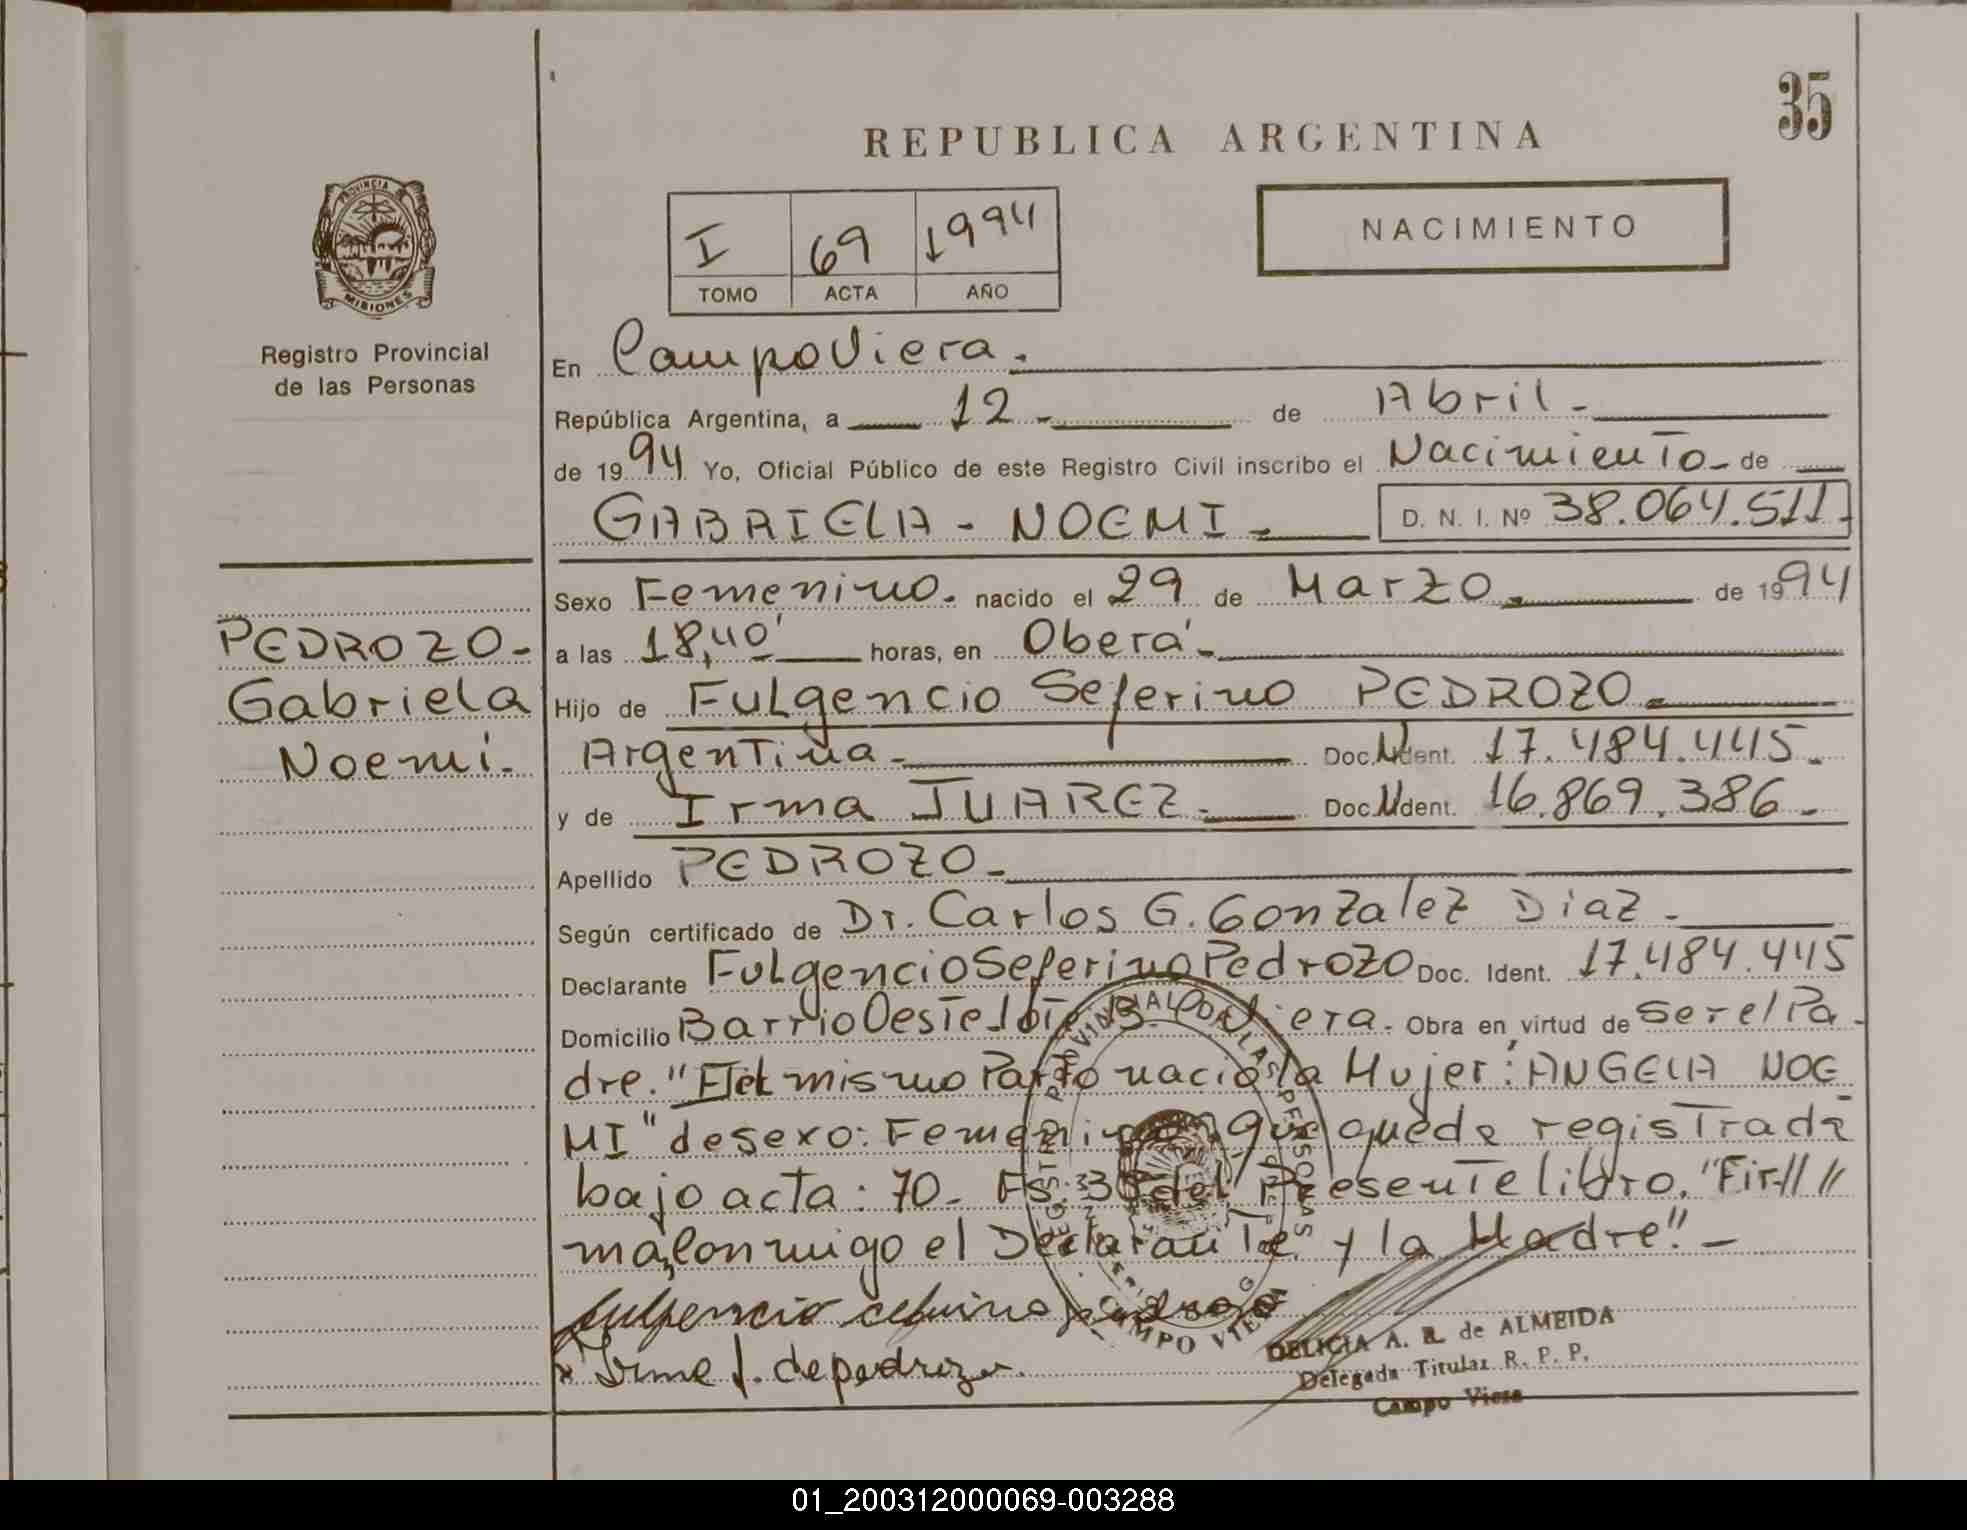 35
REPUBLICA ARGENTINA
PROVINCIA
MISIONES
Registro Provincial
de las Personas
I 69 1994
TOMO ACTA AÑO
NACIMIENTO
En Campo Viera.
República Argentina, a 12 - de Abril -
de 1994 Yo, Oficial Público de este Registro Civil inscribo el Nacimiento - de
GABRIELA - NOEMI - D. N. I. Nº 38.064.511.
Sexo Femenino. nacido el 29 de Marzo - de 1994
PEDROZO -
Gabriela
Noemi.
a las 18,40' horas, en Oberá -
Hijo de Fulgencio Seferino PEDROZO -
Argentina - Doc. Ident. 17.484.445.
y de Irma JUAREZ - Doc. Ident. 16.869.386 -
Apellido PEDROZO -
Según certificado de Dr. Carlos G. Gonzalez Diaz -
Declarante Fulgencio Seferino Pedrozo Doc. Ident. 17.484.445
Domicilio Barrio Oeste Lote Viera. Obra en virtud de ser el Pa-
dre. " mismo Parto nació la Mujer: ANGELA NOE
MI" de sexo: Femenino que queda registrada
bajo acta: 70 - Fs. del Presente libro. "Fir//
ma conmigo el Declarante y la Madre". -
fulgencio ceferino pedrozo
x Irma J. de pedrozo
REGISTRO PROVINCIAL DE LAS PERSONAS
CAMPO VIERA
DELICIA A. R. de ALMEIDA
Delegada Titular R. P. P.
Campo Viera
01_200312000069-003288